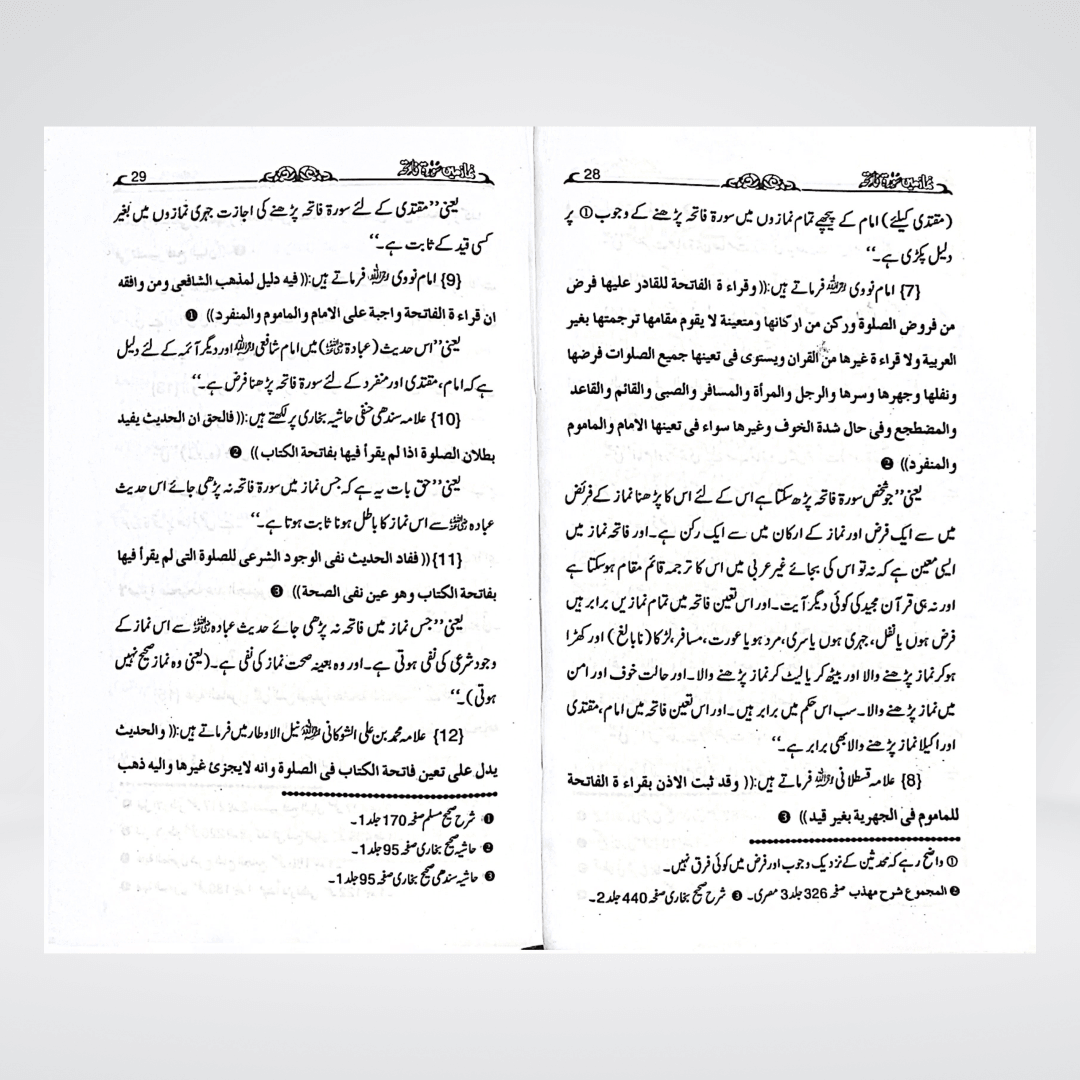 28
نماز میں سورۃ فاتحہ
(مقتدی کیلئے) امام کے پیچھے تمام نمازوں میں سورۃ فاتحہ پڑھنے کے وجوب ① پر
دلیل پکڑی ہے۔‘‘
{7} امام نووی رحمہ اللہ فرماتے ہیں:(( وقراء ة الفاتحة للقادر علیها فرض
من فروض الصلوة ورکن من ارکانها ومتعینة لا یقوم مقامها ترجمتها بغیر
العربیة ولا قراء ة غیرها من القران ویستوی فی تعینها جمیع الصلوات فرضها
ونفلها وجهرها وسرها والرجل والمرأة والمسافر والصبی والقائم والقاعد
والمضطجع وفی حال شدة الخوف وغیرها سواء فی تعینها الامام والماموم
والمنفرد)) ❷
یعنی ’’جو شخص سورۃ فاتحہ پڑھ سکتا ہے اس کے لئے اس کا پڑھنا نماز کے فرائض
میں سے ایک فرض اور نماز کے ارکان میں سے ایک رکن ہے۔ اور فاتحہ نماز میں
ایسی معین ہے کہ نہ تو اس کی بجائے غیر عربی میں اس کا ترجمہ قائم مقام ہوسکتا ہے
اور نہ ہی قرآن مجید کی کوئی دیگر آیت۔ اور اس تعین فاتحہ میں تمام نمازیں برابر ہیں
فرض ہوں یا نفل، جہری ہوں یا سری، مرد ہو یا عورت، مسافر، لڑکا (نابالغ) اور کھڑا
ہوکر نماز پڑھنے والا اور بیٹھ کر یا لیٹ کر نماز پڑھنے والا۔ اور حالت خوف اور امن
میں نماز پڑھنے والا۔ سب اس حکم میں برابر ہیں۔ اور اس تعین فاتحہ میں امام، مقتدی
اور اکیلا نماز پڑھنے والا بھی برابر ہے۔‘‘
{8} علامہ قسطلانی رحمہ اللہ فرماتے ہیں:(( وقد ثبت الاذن بقراء ة الفاتحة
للماموم فی الجهریة بغیر قید)) ❸
① واضح رہے کہ محدثین کے نزدیک وجوب اور فرض میں کوئی فرق نہیں۔
❷ المجموع شرح مهذب صفحہ 326 جلد 3 مصری۔ ❸ شرح صحیح بخاری صفحہ 440 جلد 2۔
29
نماز میں سورۃ فاتحہ
یعنی ’’مقتدی کے لئے سورۃ فاتحہ پڑھنے کی اجازت جہری نمازوں میں بغیر
کسی قید کے ثابت ہے۔‘‘
{9} امام نووی رحمہ اللہ فرماتے ہیں:(( فیه دلیل لمذهب الشافعی ومن وافقه
ان قراء ة الفاتحة واجبة علی الامام والماموم والمنفرد)) ❶
یعنی ’’اس حدیث (عبادۃ رضی اللہ عنہ) میں امام شافعی رحمہ اللہ اور دیگر آئمہ کے لئے دلیل
ہے کہ امام، مقتدی اور منفرد کے لئے سورۃ فاتحہ پڑھنا فرض ہے۔‘‘
{10} علامہ سندھی حنفی حاشیہ بخاری پر لکھتے ہیں:(( فالحق ان الحدیث یفید
بطلان الصلوة اذا لم یقرأ فیها بفاتحة الکتاب)) ❷
یعنی ’’حق بات یہ ہے کہ جس نماز میں سورۃ فاتحہ نہ پڑھی جائے اس حدیث
عبادہ رضی اللہ عنہ سے اس نماز کا باطل ہونا ثابت ہوتا ہے۔‘‘
{11} (( ففاد الحدیث نفی الوجود الشرعی للصلوة التی لم یقرأ فیها
بفاتحة الکتاب وهو عین نفی الصحة)) ❸
یعنی ’’جس نماز میں فاتحہ نہ پڑھی جائے حدیث عبادہ رضی اللہ عنہ سے اس نماز کے
وجود شرعی کی نفی ہوتی ہے۔ اور وہ بعینہ صحت نماز کی نفی ہے۔ (یعنی وہ نماز صحیح نہیں
ہوتی)۔‘‘
{12} علامہ محمد بن علی الشوکانی رحمہ اللہ نیل الاوطار میں فرماتے ہیں:(( والحدیث
یدل علی تعین فاتحة الکتاب فی الصلوة وانه لایجزئ غیرها والیه ذهب
❶ شرح صحیح مسلم صفحہ 170 جلد 1۔
❷ حاشیہ صحیح بخاری صفحہ 95 جلد 1۔
❸ حاشیہ سندھی صحیح بخاری صفحہ 95 جلد 1۔